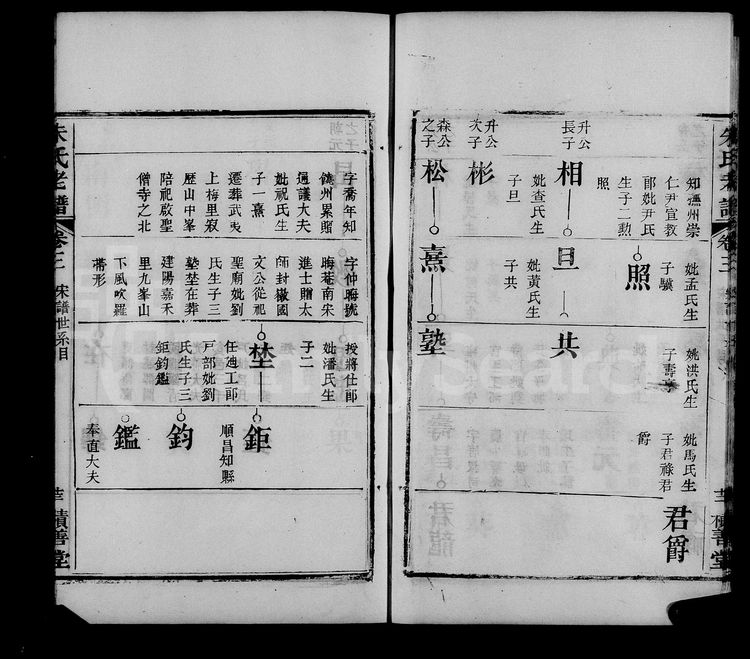 朱氏老譜
卷三
積善堂
知撫州崇
仁尹宣教
郎妣尹氏
生子二勲
照
照
妣孟氏生
子驥
妣洪氏生
子壽亨
妣馬氏生
子君祿君
爵
君爵
升公
長子
相
妣查氏生
子旦
旦
妣黃氏生
子共
共
升公
次子
彬
森公
之子
松
熹
塾
字喬年知
饒州累贈
通議大夫
妣祝氏生
子一熹
遷葬武夷
上梅里寂
歷山中峯
陪祀啟聖
僧寺之北
字仲晦號
晦菴南宋
進士贈太
師封徽國
文公從祀
聖廟妣劉
氏生子三
塾埜在葬
建陽嘉禾
里九峯山
下風吹羅
帶形
授將仕郎
妣潘氏生
子二
埜
任廸工郎
戸部妣劉
氏生子三
鉅鈞鑑
鉅
順昌知縣
鈞
鑑
奉直大夫
朱氏老譜
卷三
宋譜世系目
積善堂